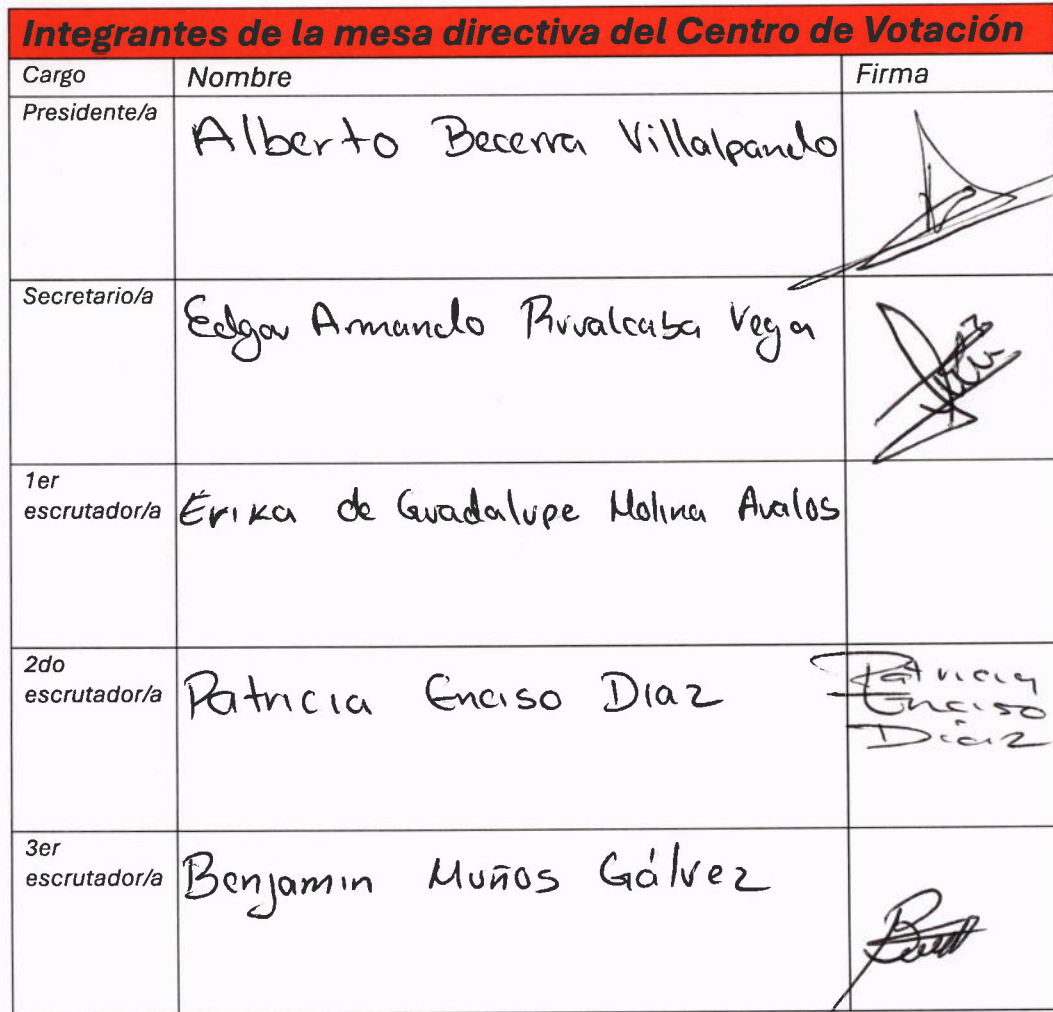 Integrantes de la mesa directiva del Centro de Votación
Cargo Nombre Firma
Presidente/a Alberto Becerra Villalpando
Secretario/a Edgar Armando Ruvalcaba Vega
1er
escrutador/a Erika de Guadalupe Molina Avalos
2do
escrutador/a Patricia Enciso Diaz
Patricia
Enciso
Diaz
3er
escrutador/a Benjamin Muños Gálvez